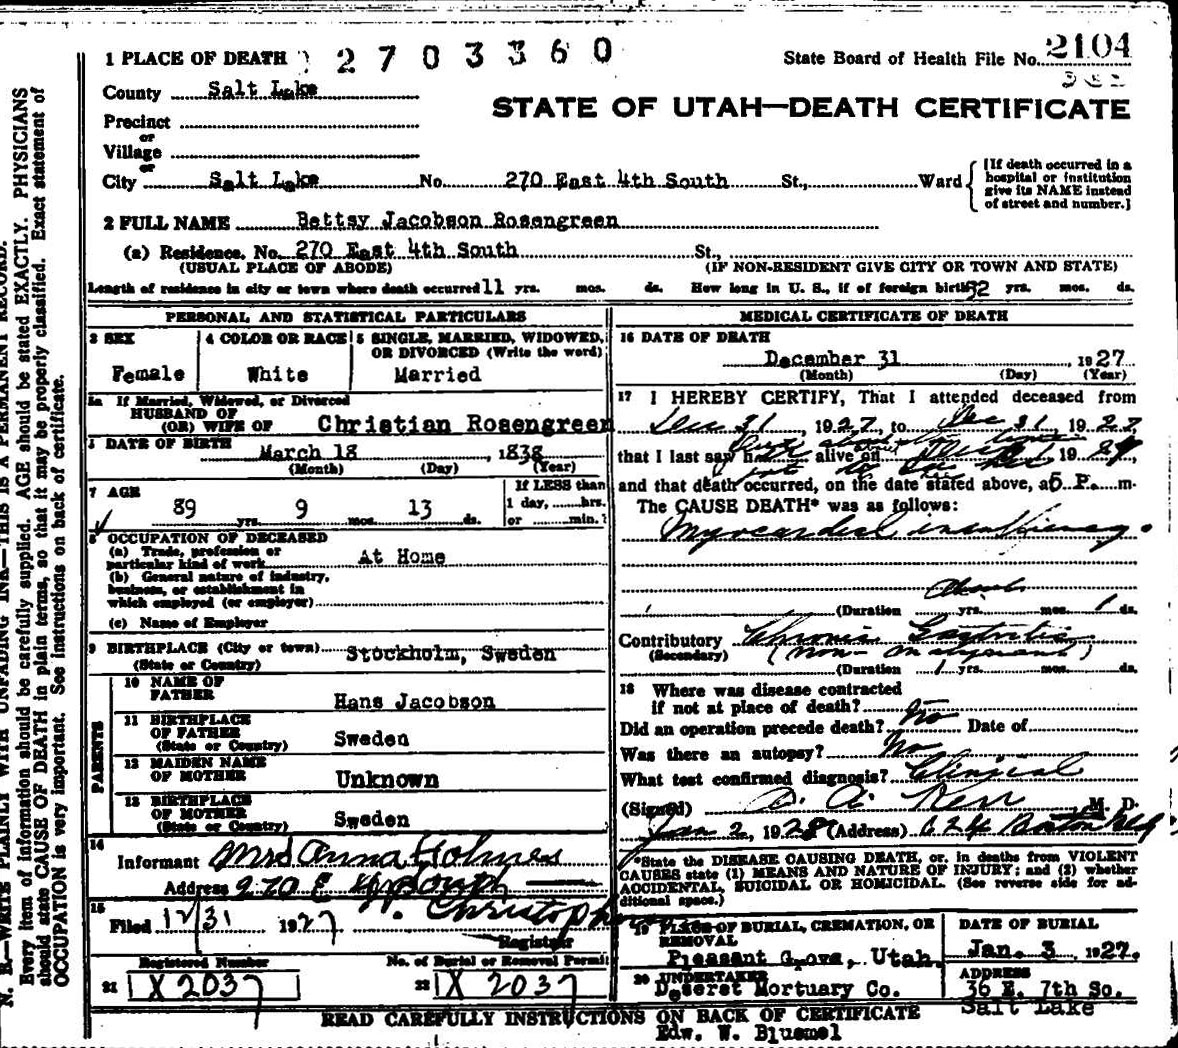 1 PLACE OF DEATH 2703360
State Board of Health File No. 2104
County Salt Lake
STATE OF UTAH—DEATH CERTIFICATE
Precinct
or
Village
or
City Salt Lake No. 270 East 4th South St., Ward
[If death occurred in a
hospital or institution
give its NAME instead
of street and number.]
2 FULL NAME Bettsy Jacobson Rosengreen
(a) Residence. No. 270 East 4th South St.,
(USUAL PLACE OF ABODE) (IF NON-RESIDENT GIVE CITY OR TOWN AND STATE)
Length of residence in city or town where death occurred 11 yrs. mos. ds. How long in U. S., if of foreign birth yrs. mos. ds.
PERSONAL AND STATISTICAL PARTICULARS
3 SEX 4 COLOR OR RACE 5 SINGLE, MARRIED, WIDOWED,
OR DIVORCED (Write the word)
Female White Married
5a If Married, Widowed, or Divorced
HUSBAND OF
(OR) WIFE OF Christian Rosengreen
DATE OF BIRTH
March 18, 1838
(Month) (Day) (Year)
7 AGE
89 yrs. 9 mos. 13 ds.
If LESS than
1 day, hrs.
or min.?
8 OCCUPATION OF DECEASED
(a) Trade, profession or
particular kind of work At Home
(b) General nature of industry,
business, or establishment in
which employed (or employer)
(c) Name of Employer
9 BIRTHPLACE (City or town) Stockholm, Sweden
(State or Country)
PARENTS
10 NAME OF
FATHER Hans Jacobson
11 BIRTHPLACE
OF FATHER Sweden
(State or Country)
12 MAIDEN NAME
OF MOTHER Unknown
13 BIRTHPLACE
OF MOTHER Sweden
(State or Country)
14
Informant Mrs Anna Holmes
Address 270 E
15
Filed 12/31 1927
Registrar
Registered Number No. of Burial or Removal Permit
21 X 2037 22 X 2037
MEDICAL CERTIFICATE OF DEATH
16 DATE OF DEATH
December 31, 1927
(Month) (Day) (Year)
17 I HEREBY CERTIFY, That I attended deceased from
Dec 31, 1927, to Dec 31, 1927
that I last saw h alive on 19
and that death occurred, on the date stated above, at 5 P. m.
The CAUSE DEATH* was as follows:
Myocardial insufficiency
(Duration yrs. mos. 1 ds.
Contributory Chronic Gastritis
(Secondary) (non-malignant)
(Duration 1 yrs. mos. ds.
18 Where was disease contracted
if not at place of death?
Did an operation precede death? No Date of
Was there an autopsy? No
What test confirmed diagnosis? Clinical
(Signed) Kerr M. D.
Jan 2, 1928 (Address)
*State the DISEASE CAUSING DEATH, or, in deaths from VIOLENT
CAUSES state (1) MEANS AND NATURE OF INJURY; and (2) whether
ACCIDENTAL, SUICIDAL OR HOMICIDAL. (See reverse side for ad-
ditional space.)
19 PLACE OF BURIAL, CREMATION, OR
REMOVAL
Pleasant Grove, Utah.
DATE OF BURIAL
Jan. 3, 1927.
20 UNDERTAKER
Deseret Mortuary Co.
ADDRESS
36 E. 7th So.
Salt Lake
READ CAREFULLY INSTRUCTIONS ON BACK OF CERTIFICATE
Edw. W. Bluemel
N. B.—WRITE PLAINLY WITH UNFADING INK—THIS IS A PERMANENT RECORD.
Every item of information should be carefully supplied. AGE should be stated EXACTLY. PHYSICIANS
should state CAUSE OF DEATH in plain terms, so that it may be properly classified. Exact statement of
OCCUPATION is very important. See instructions on back of certificate.